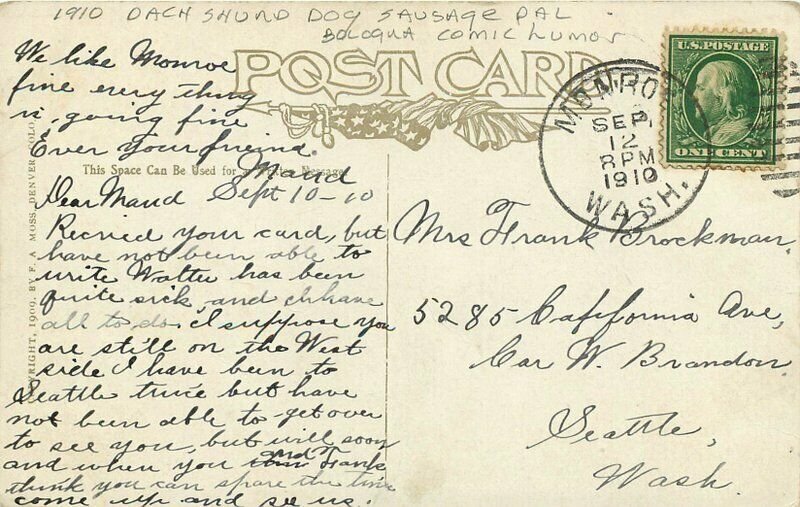 1910 DACHSHUND DOG SAUSAGE PAL
BOLOGNA COMIC HUMOR
POST CARD
U.S. POSTAGE
ONE CENT
MONROE
SEP
12
PM
1910
WASH.
We like Monroe
fine every thing
is, going fine
Ever your freind.
Maud
This Space Can Be Used for a Message
Sept 10-10
Dear Maud
Recived your card, but
have not been able to
write Walter has been
quite sick, and I have
all to do. I suppose you
are still on the West
side I have been to
Seattle twice but have
not been able to get over
to see you, but will soon
and when you and Frank
think you can spare the time
come up and see us.
COPYRIGHT, 1909, BY F. A. MOSS, DENVER, COLO.
Mrs Frank Brockman,
5285 California Ave,
Car W. Brandon.
Seattle,
Wash.